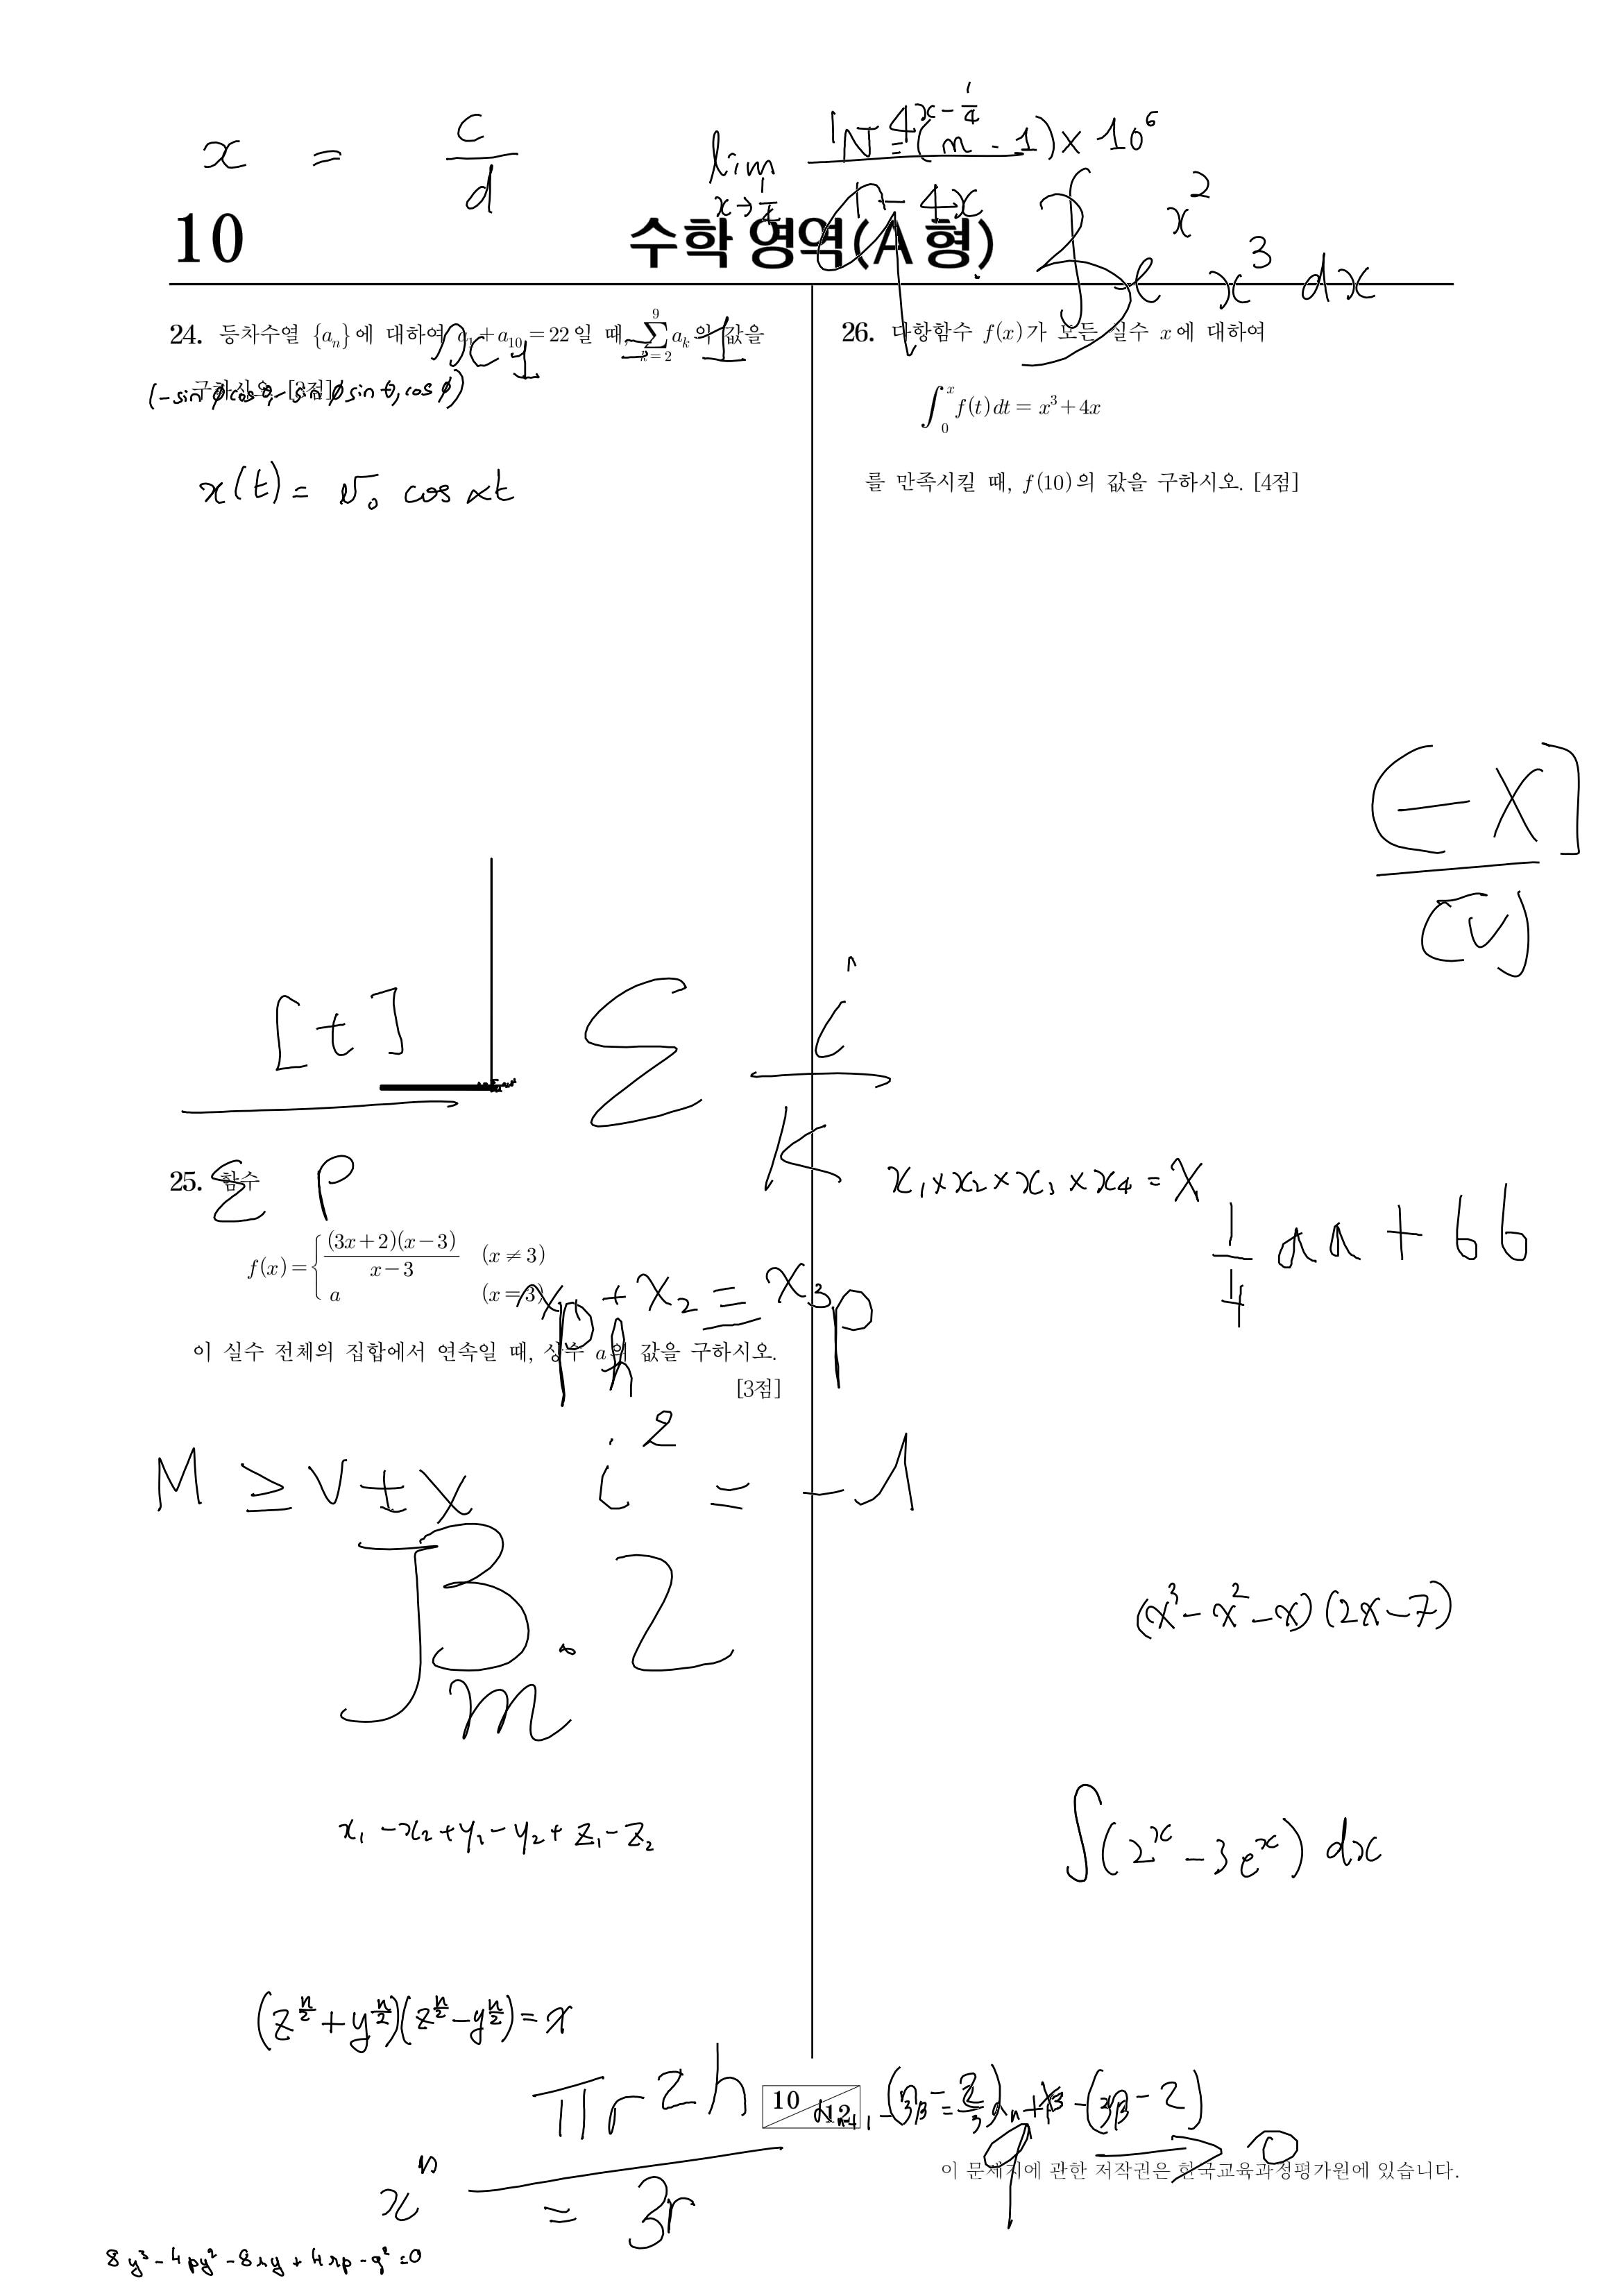 x = c/d
lim x→1/4
1 - 4^{x-1/4}
1 - 4x
N = (n - 1) × 10^6
10
수학 영역(A 형)
∫ e^{x^2} x^3 dx
24. 등차수열 {a_n}에 대하여 a_1 + a_10 = 22일 때, \sum_{k=2}^{9} a_k의 값을
구하시오. [3점]
(-sin φ cos θ, -sin φ sin θ, cos φ)
x(t) = v_0 cos αt
[t]
Σ i/K
25. 함수
Σ p
f(x) = { (3x+2)(x-3) / (x-3) (x ≠ 3)
a (x = 3)
x_1 + x_2 = x_3
이 실수 전체의 집합에서 연속일 때, 상수 a의 값을 구하시오.
[3점]
M ≥ V ± X
i^2 = -1
x_1 - x_2 + y_1 - y_2 + z_1 - z_2
(z^{n/2} + y^{n/2})(z^{n/2} - y^{n/2}) = x
πr^2h
x^n
= 3r
8y^3 - 4py^2 - 8ry + 4rp - q^2 = 0
26. 다항함수 f(x)가 모든 실수 x에 대하여
∫_0^x f(t)dt = x^3 + 4x
를 만족시킬 때, f(10)의 값을 구하시오. [4점]
[-X]
(V)
x_1 × x_2 × x_3 × x_4 = X
1/4 aa + bb
(x^3 - x^2 - x)(2x - 7)
∫(2^x - 3e^x) dx
10
12
q → 0
이 문제지에 관한 저작권은 한국교육과정평가원에 있습니다.